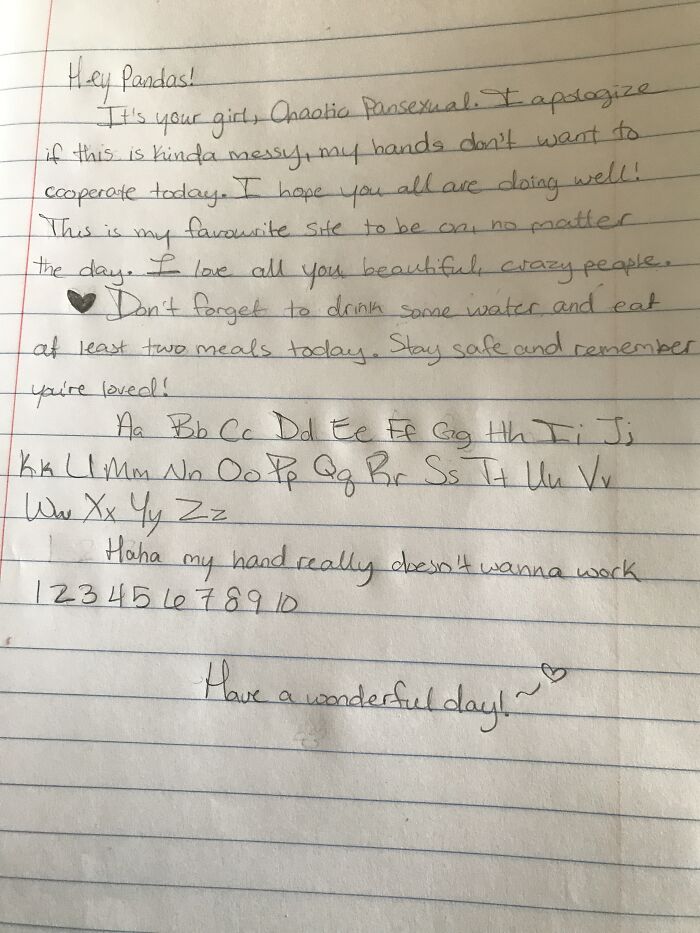 Hey Pandas!
It's your girl, Chaotic Pansexual. I apologize
if this is kinda messy, my hands don't want to
cooperate today. I hope you all are doing well!
This is my favourite site to be on, no matter
the day. I love all you beautiful, crazy people.
♥ Don't forget to drink some water and eat
at least two meals today. Stay safe and remember
you're loved!
Aa Bb Cc Dd Ee Ff Gg Hh Ii Jj
Kk Ll Mm Nn Oo Pp Qq Rr Ss Tt Uu Vv
Ww Xx Yy Zz
Haha my hand really doesn't wanna work
1 2 3 4 5 6 7 8 9 10
Have a wonderful day! ~♡